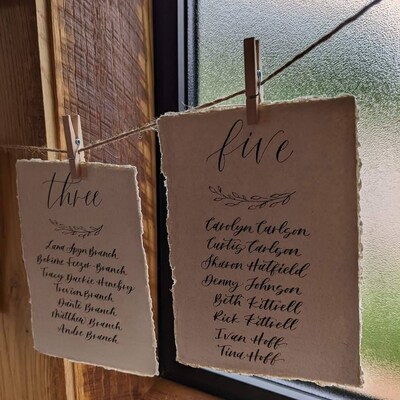 three
Lana Branch
Branch
Tracy
Trevion Branch
Dante Branch
Matthew Branch
Andre Branch
five
Carolyn Carlson
Curtis Carlson
Sharon Hatfield
Denny Johnson
Beth Kittrell
Rick Kittrell
Ivan Hoff
Tina Hoff